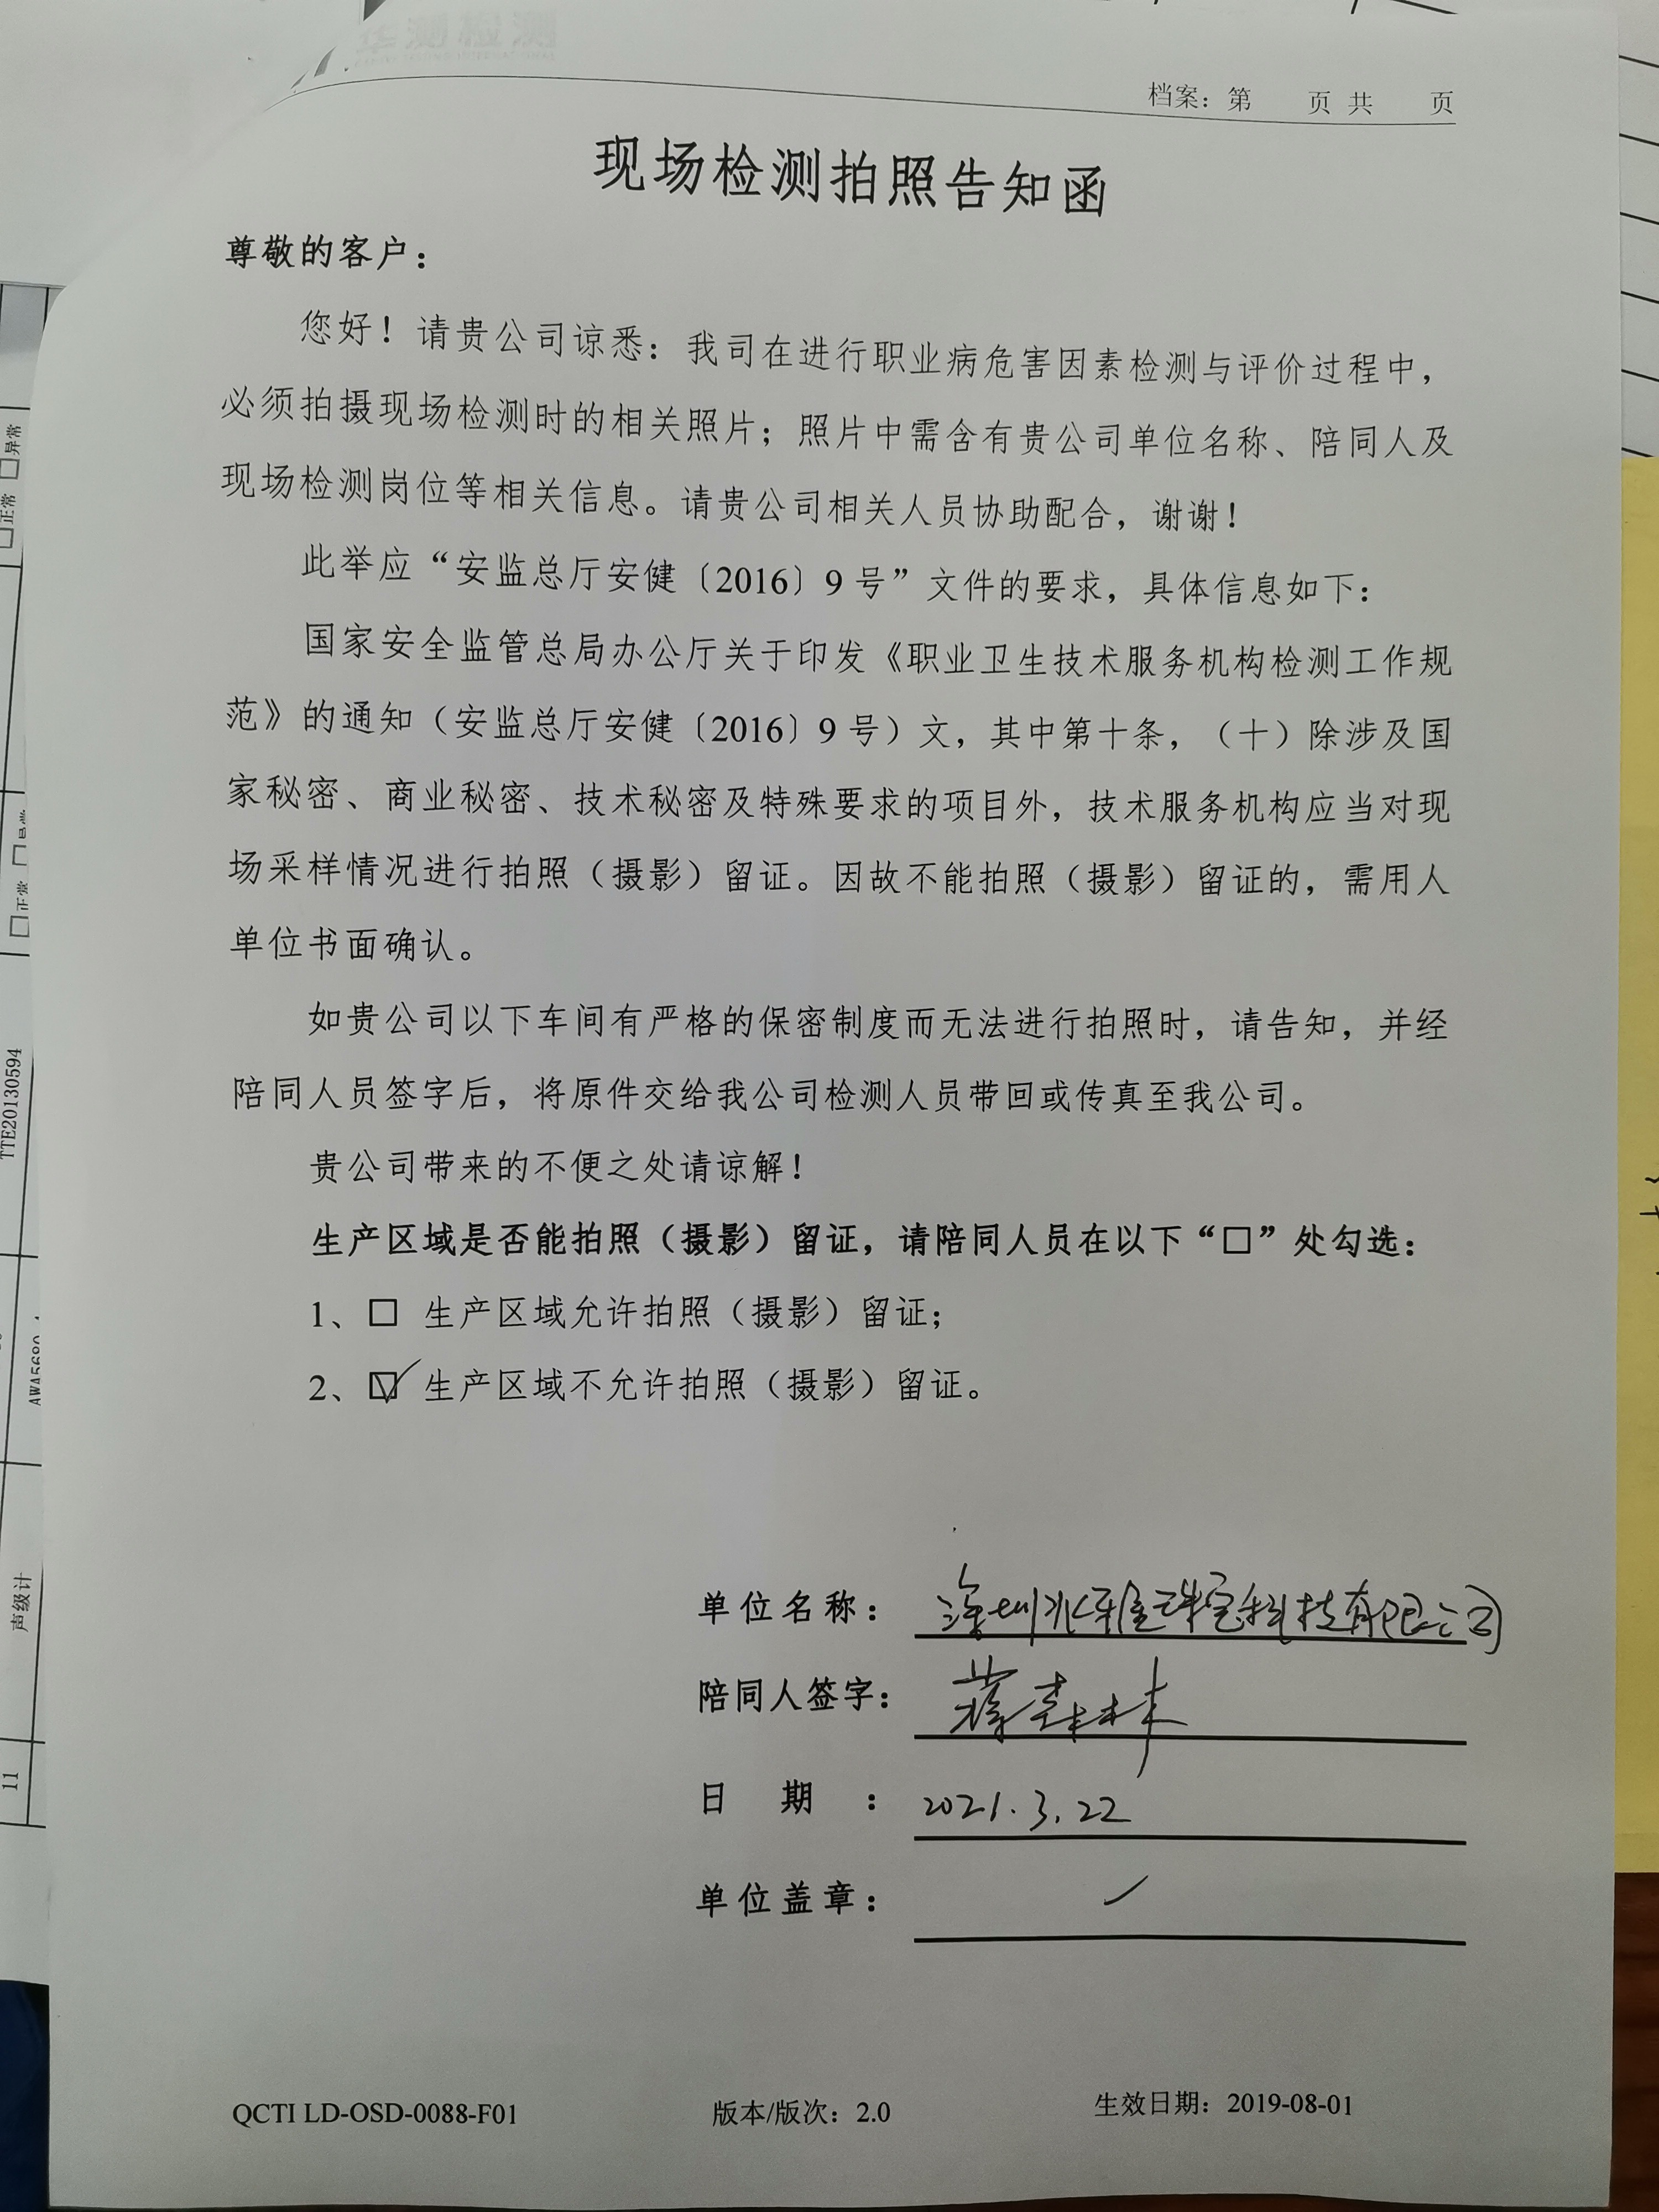 档案：第 页 共 页
现场检测拍照告知函
尊敬的客户：
您好！请贵公司谅悉：我司在进行职业病危害因素检测与评价过程中，
必须拍摄现场检测时的相关照片；照片中需含有贵公司单位名称、陪同人及
现场检测岗位等相关信息。请贵公司相关人员协助配合，谢谢！
此举应“安监总厅安健〔2016〕9 号”文件的要求，具体信息如下：
国家安全监管总局办公厅关于印发《职业卫生技术服务机构检测工作规
范》的通知（安监总厅安健〔2016〕9 号）文，其中第十条，（十）除涉及国
家秘密、商业秘密、技术秘密及特殊要求的项目外，技术服务机构应当对现
场采样情况进行拍照（摄影）留证。因故不能拍照（摄影）留证的，需用人
单位书面确认。
如贵公司以下车间有严格的保密制度而无法进行拍照时，请告知，并经
陪同人员签字后，将原件交给我公司检测人员带回或传真至我公司。
贵公司带来的不便之处请谅解！
生产区域是否能拍照（摄影）留证，请陪同人员在以下“□”处勾选：
1、□ 生产区域允许拍照（摄影）留证；
2、☑ 生产区域不允许拍照（摄影）留证。
单位名称： 深圳 雅珠宝科技有限公司
陪同人签字： 林
日 期 ： 2021.3.22
单位盖章：
QCTI LD-OSD-0088-F01 版本/版次：2.0 生效日期：2019-08-01
正常 □异常
TTE20130594
声级计
11